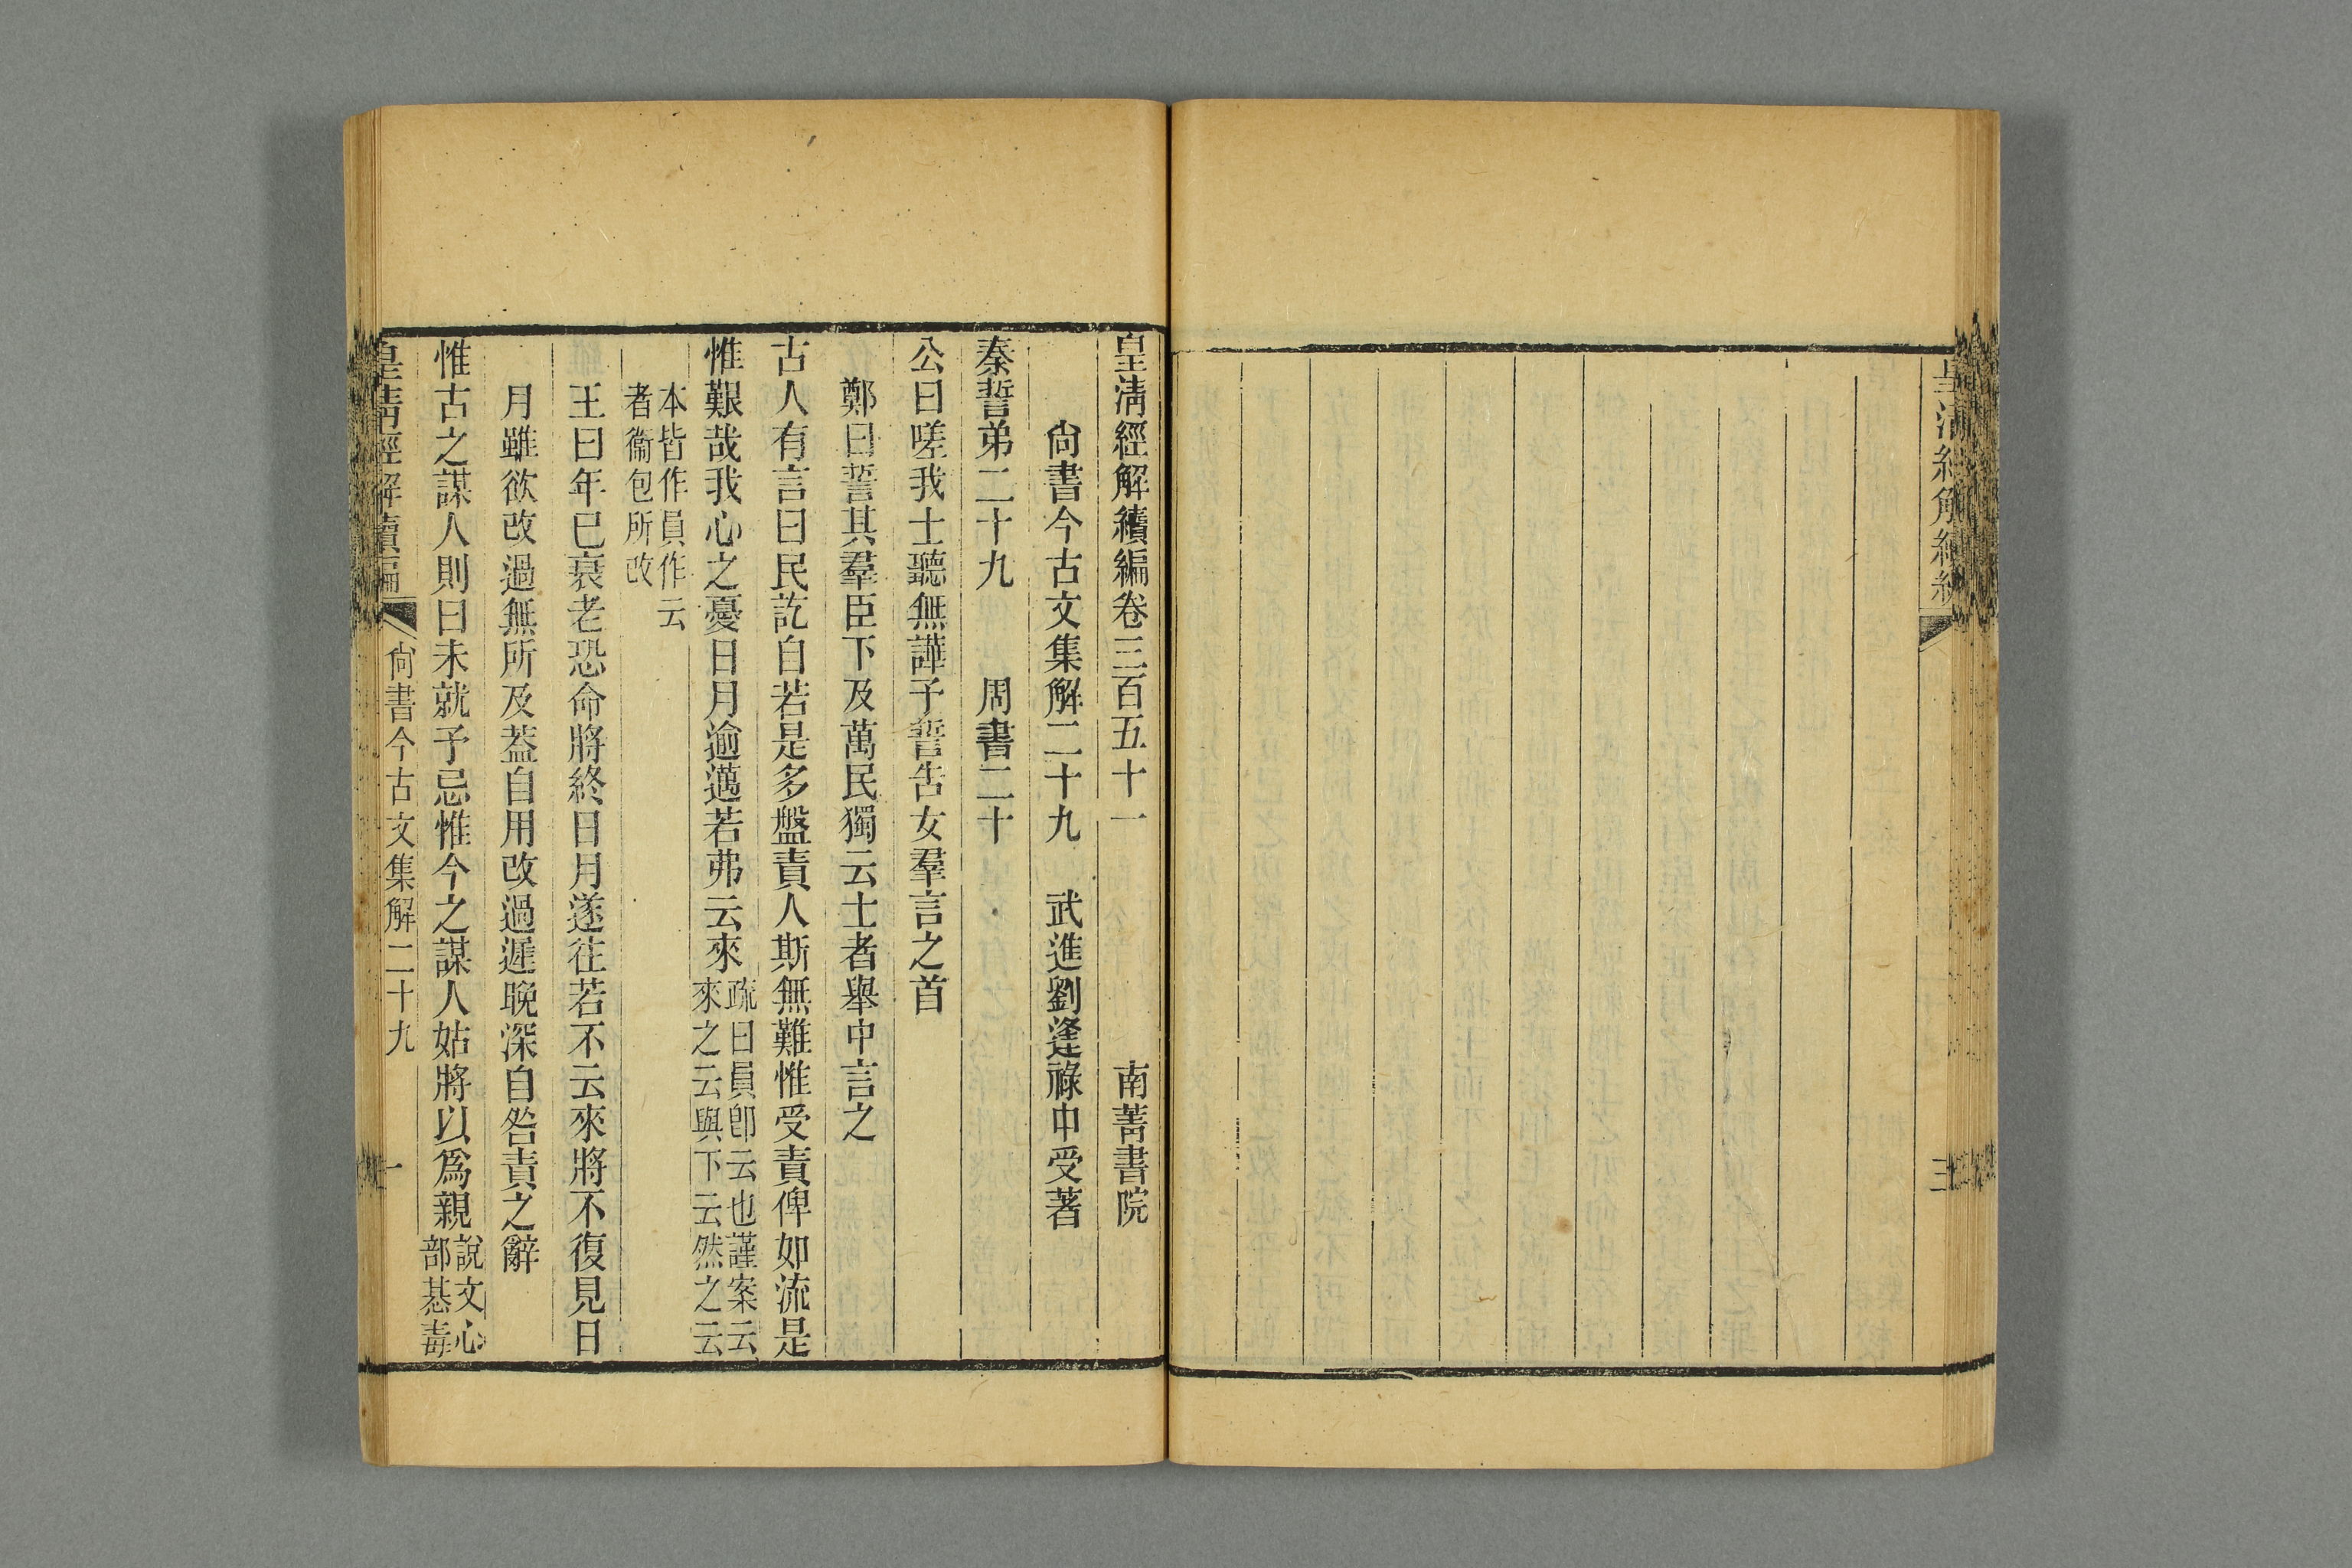 三
皇清經解續編卷三百五十一 南菁書院
尚書今古文集解二十九 武進劉逢祿申受著
秦誓弟二十九 周書二十
公曰嗟我士聽無譁予誓告女羣言之首
鄭曰誓其羣臣下及萬民獨云士者舉中言之
古人有言曰民訖自若是多盤責人斯無難惟受責俾如流是
惟艱哉我心之憂日月逾邁若弗云來
疏曰員卽云也謹案云
來之云與下云然之云
本皆作員作云
者衞包所改
王曰年已衰老恐命將終日月遂往若不云來將不復見日
月雖欲改過無所及葢自用改過遲晚深自咎責之辭
惟古之謀人則曰未就予忌惟今之謀人姑將以爲親
說文心
部惎毒
皇清經解續編 尚書今古文集解二十九 一